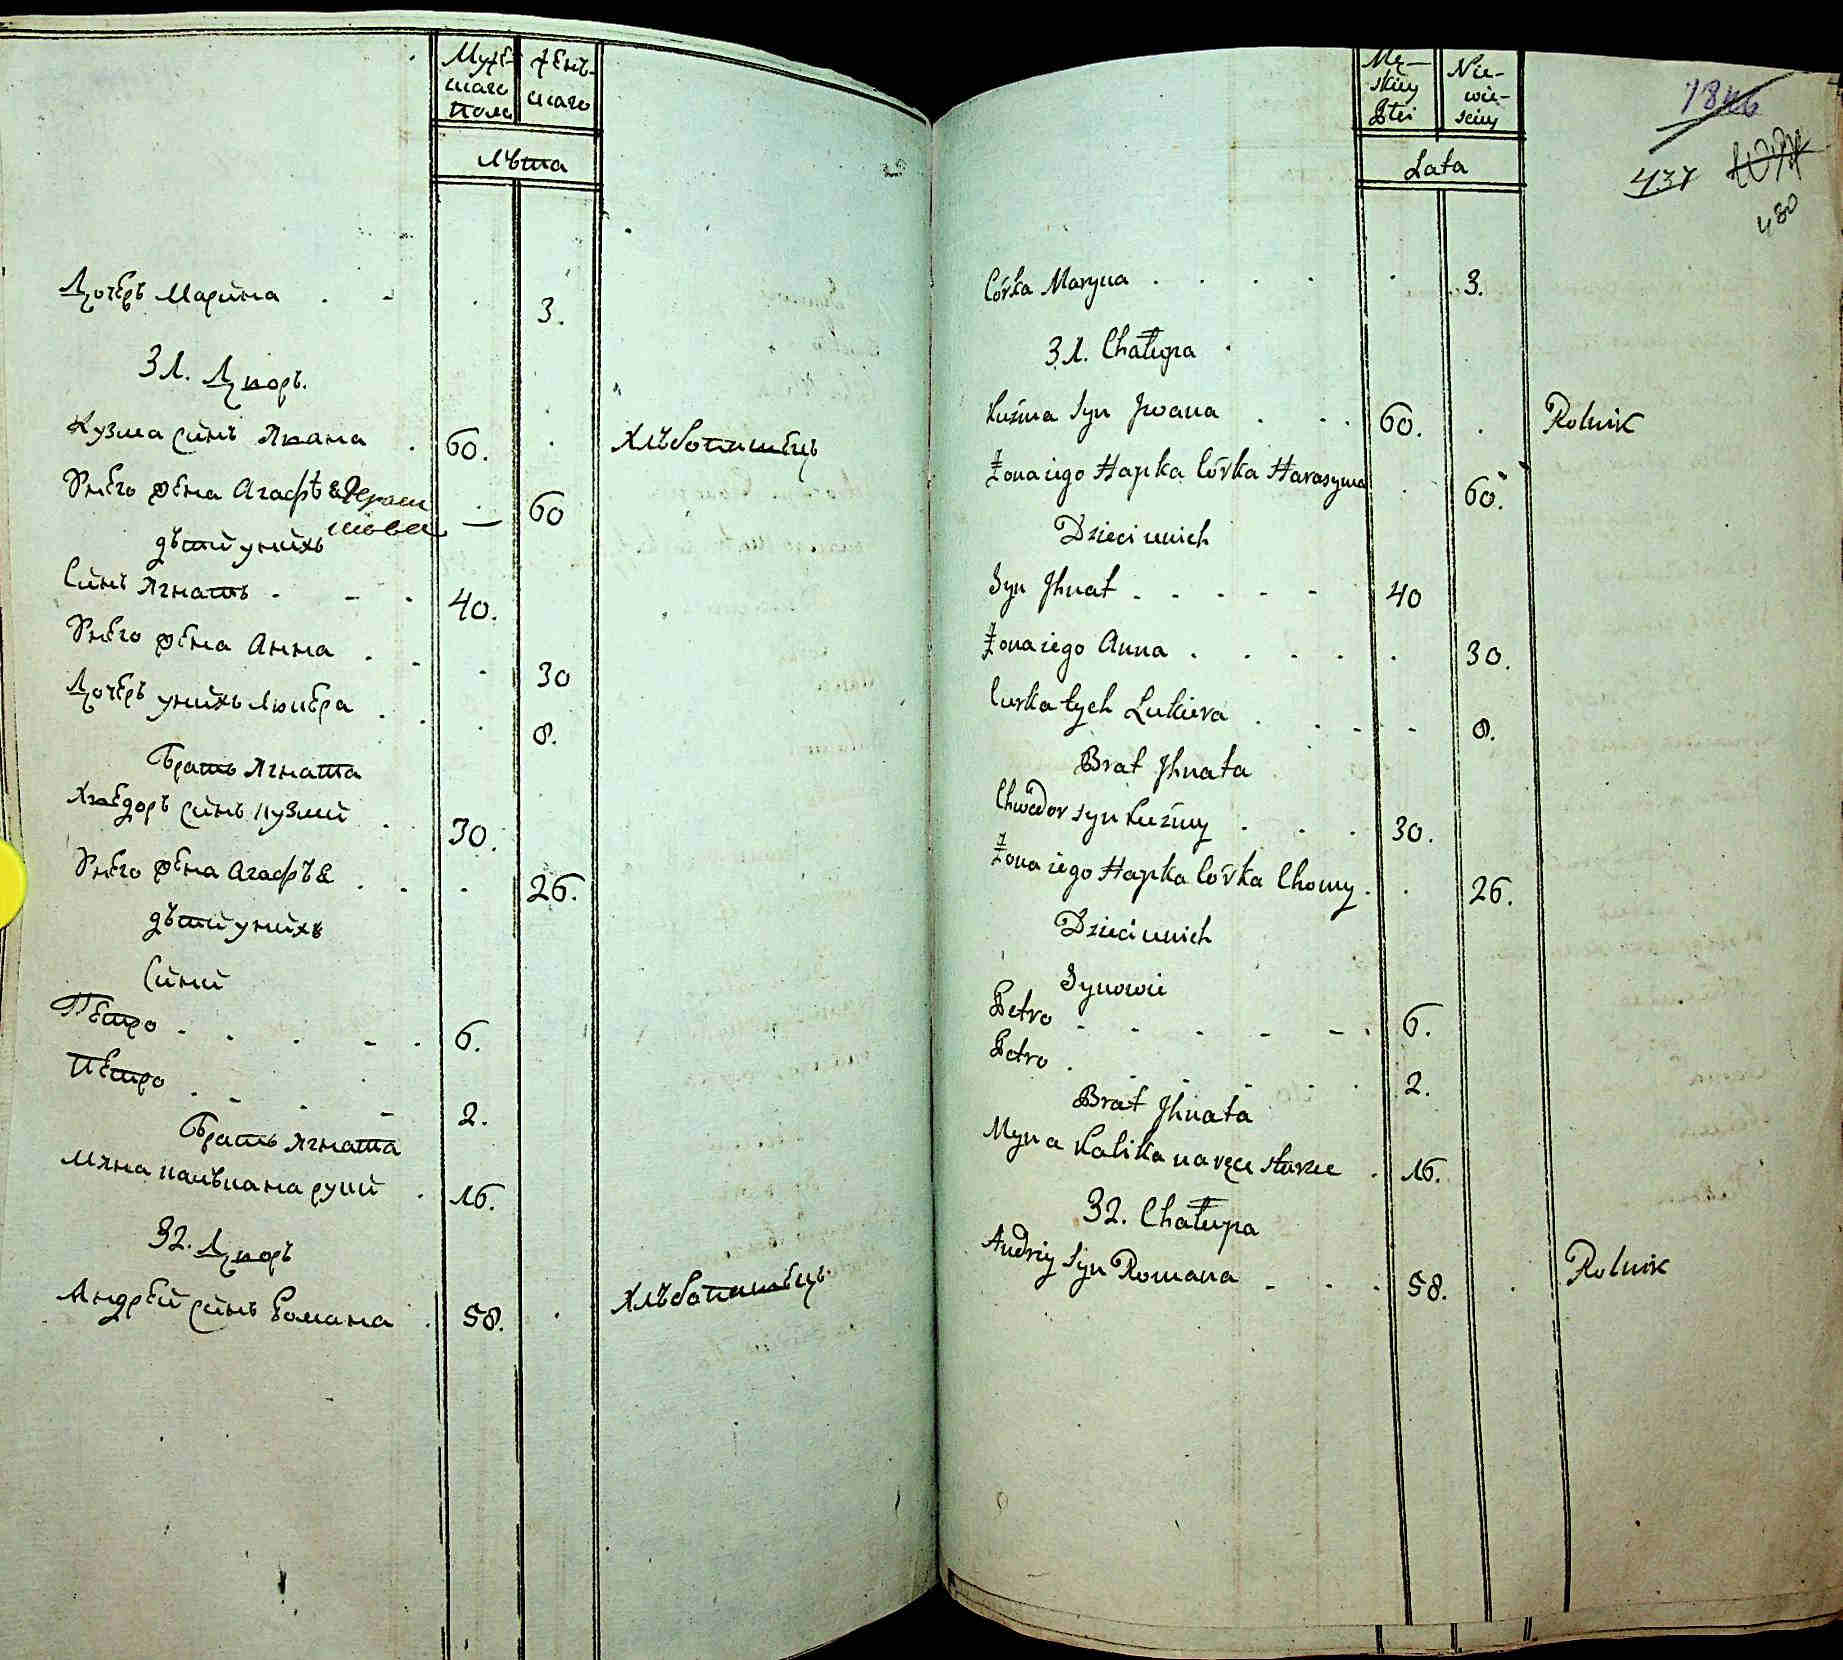 Мужескаго пола
Женскаго
Лѣта
Дочерь Марина 3.
31. Дворъ.
Кузма синъ Ивана 60. Хлѣбопашецъ
Унего жена Агафѣя Герасимова — 60
дѣти унихъ
Синъ Игнатъ 40.
Унего жена Анна 30
Дочерь унихъ Люкера 8.
Братъ Игната
Хведоръ синъ Кузми 30.
Унего жена Агафѣя 26.
дѣти унихъ
Сини
Петро 6.
Петро 2.
Братъ Игната
Мина калѣка на руки 16.
32. Дворъ
Андрей синъ Романа 58. Хлѣбопашецъ
Męskiey Płci
Niewieściey
Lata
1846
437
480
Córka Maryna 3.
31. Chałupa
Kuźma Syn Jwana 60. Rolnik
Żona iego Hapka Córka Harasyma 60.
Dzieci unich
Syn Jhnat 40
Żona iego Anna 30.
Curka tych Lukiera 8.
Brat Jhnata
Chwedor syn Kuźmy 30.
Żona iego Hapka Córka Chomy 26.
Dzieci unich
Synowie
Petro 6.
Petro 2.
Brat Jhnata
Myna Kalika na ręce 16.
32. Chałupa
Andriy Syn Romana 58. Rolnik